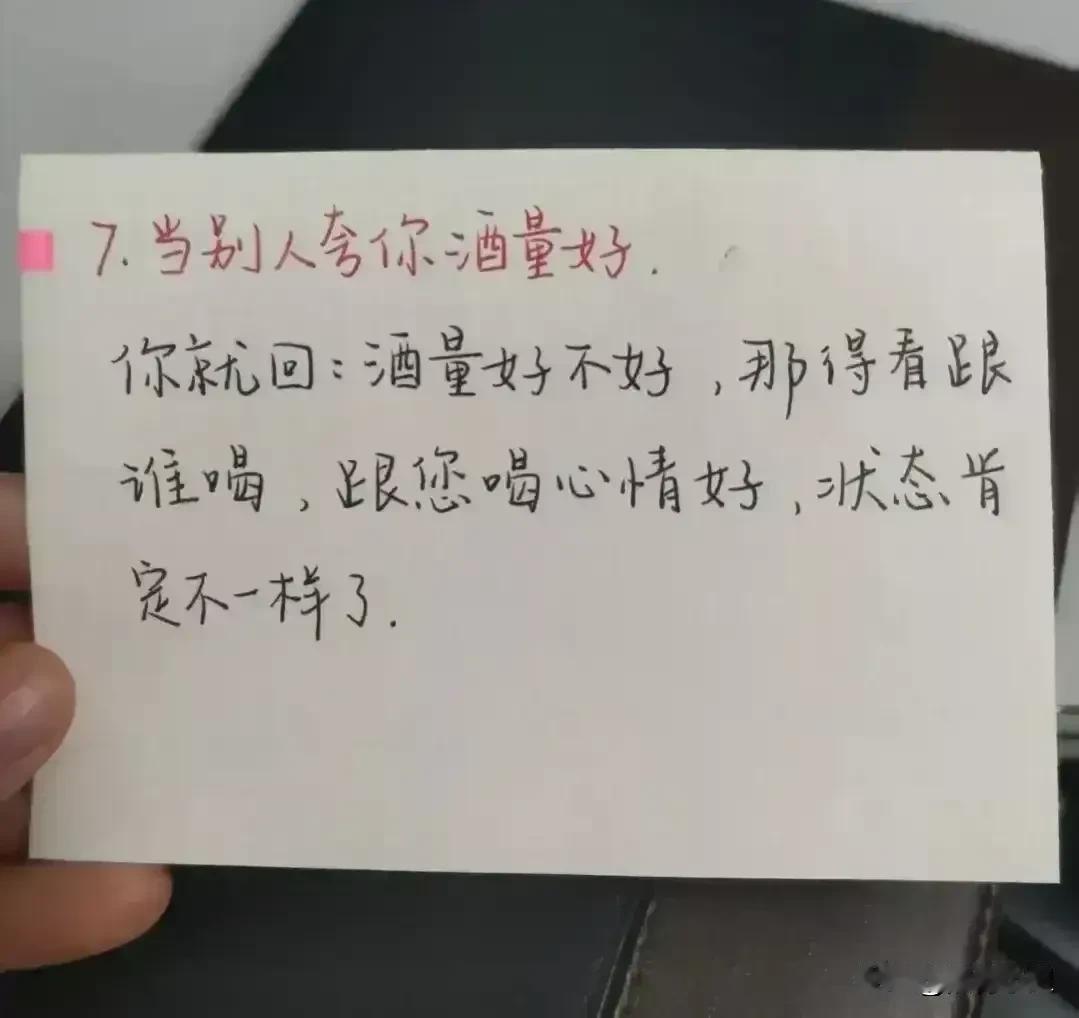 7.当别人夸你酒量好.
你就回：酒量好不好，那得看跟
谁喝，跟您喝心情好，状态肯
定不一样了.